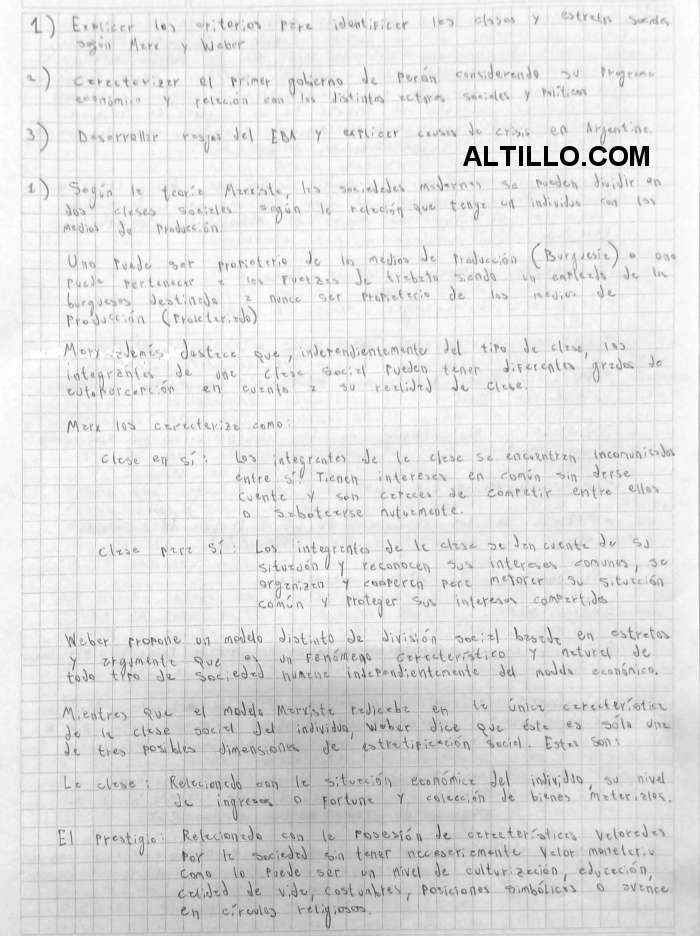 1) Explicar los criterios para identificar las clases y estratos sociales
según Marx y Weber
2) Caracterizar el primer gobierno de Perón considerando su programa
económico y relación con los distintos actores sociales y políticos
3) Desarrollar rasgos del EBA y explicar causas de crisis en Argentina.
ALTILLO.COM
1) Según la teoría Marxista, las sociedades modernas se pueden dividir en
dos clases sociales según la relación que tenga un individuo con los
medios de producción.
Uno puede ser propietario de los medios de producción (Burguesía) o uno
puede pertenecer a las fuerzas de trabajo siendo un empleado de los
burgueses destinado a nunca ser propietario de los medios de
producción (Proletariado)
Marx además destaca que, independientemente del tipo de clase, los
integrantes de una clase social pueden tener diferentes grados de
autopercepción en cuanto a su realidad de clase.
Marx los caracteriza como:
Clase en sí: Los integrantes de la clase se encuentran incomunicados
entre sí. Tienen intereses en común sin darse
cuenta y son capaces de competir entre ellos
o sabotearse mutuamente.
Clase para sí: Los integrantes de la clase se dan cuenta de su
situación y reconocen sus intereses comunes, se
organizan y cooperan para mejorar su situación
común y proteger sus intereses compartidos
Weber propone un modelo distinto de división social basada en estratos
y argumenta que es un fenómeno característico y natural de
todo tipo de sociedad humana independientemente del modelo económico.
Mientras que el modelo Marxista radicaba en la única característica
de la clase social del individuo, Weber dice que ésta es sólo una
de tres posibles dimensiones de estratificación social. Estas son:
La clase: Relacionado con la situación económica del individuo, su nivel
de ingresos o fortuna y colección de bienes materiales.
El prestigio: Relacionado con la posesión de características valoradas
por la sociedad sin tener necesariamente valor monetario
como lo puede ser un nivel de culturización, educación,
calidad de vida, costumbres, posiciones simbólicas o avance
en círculos religiosos.